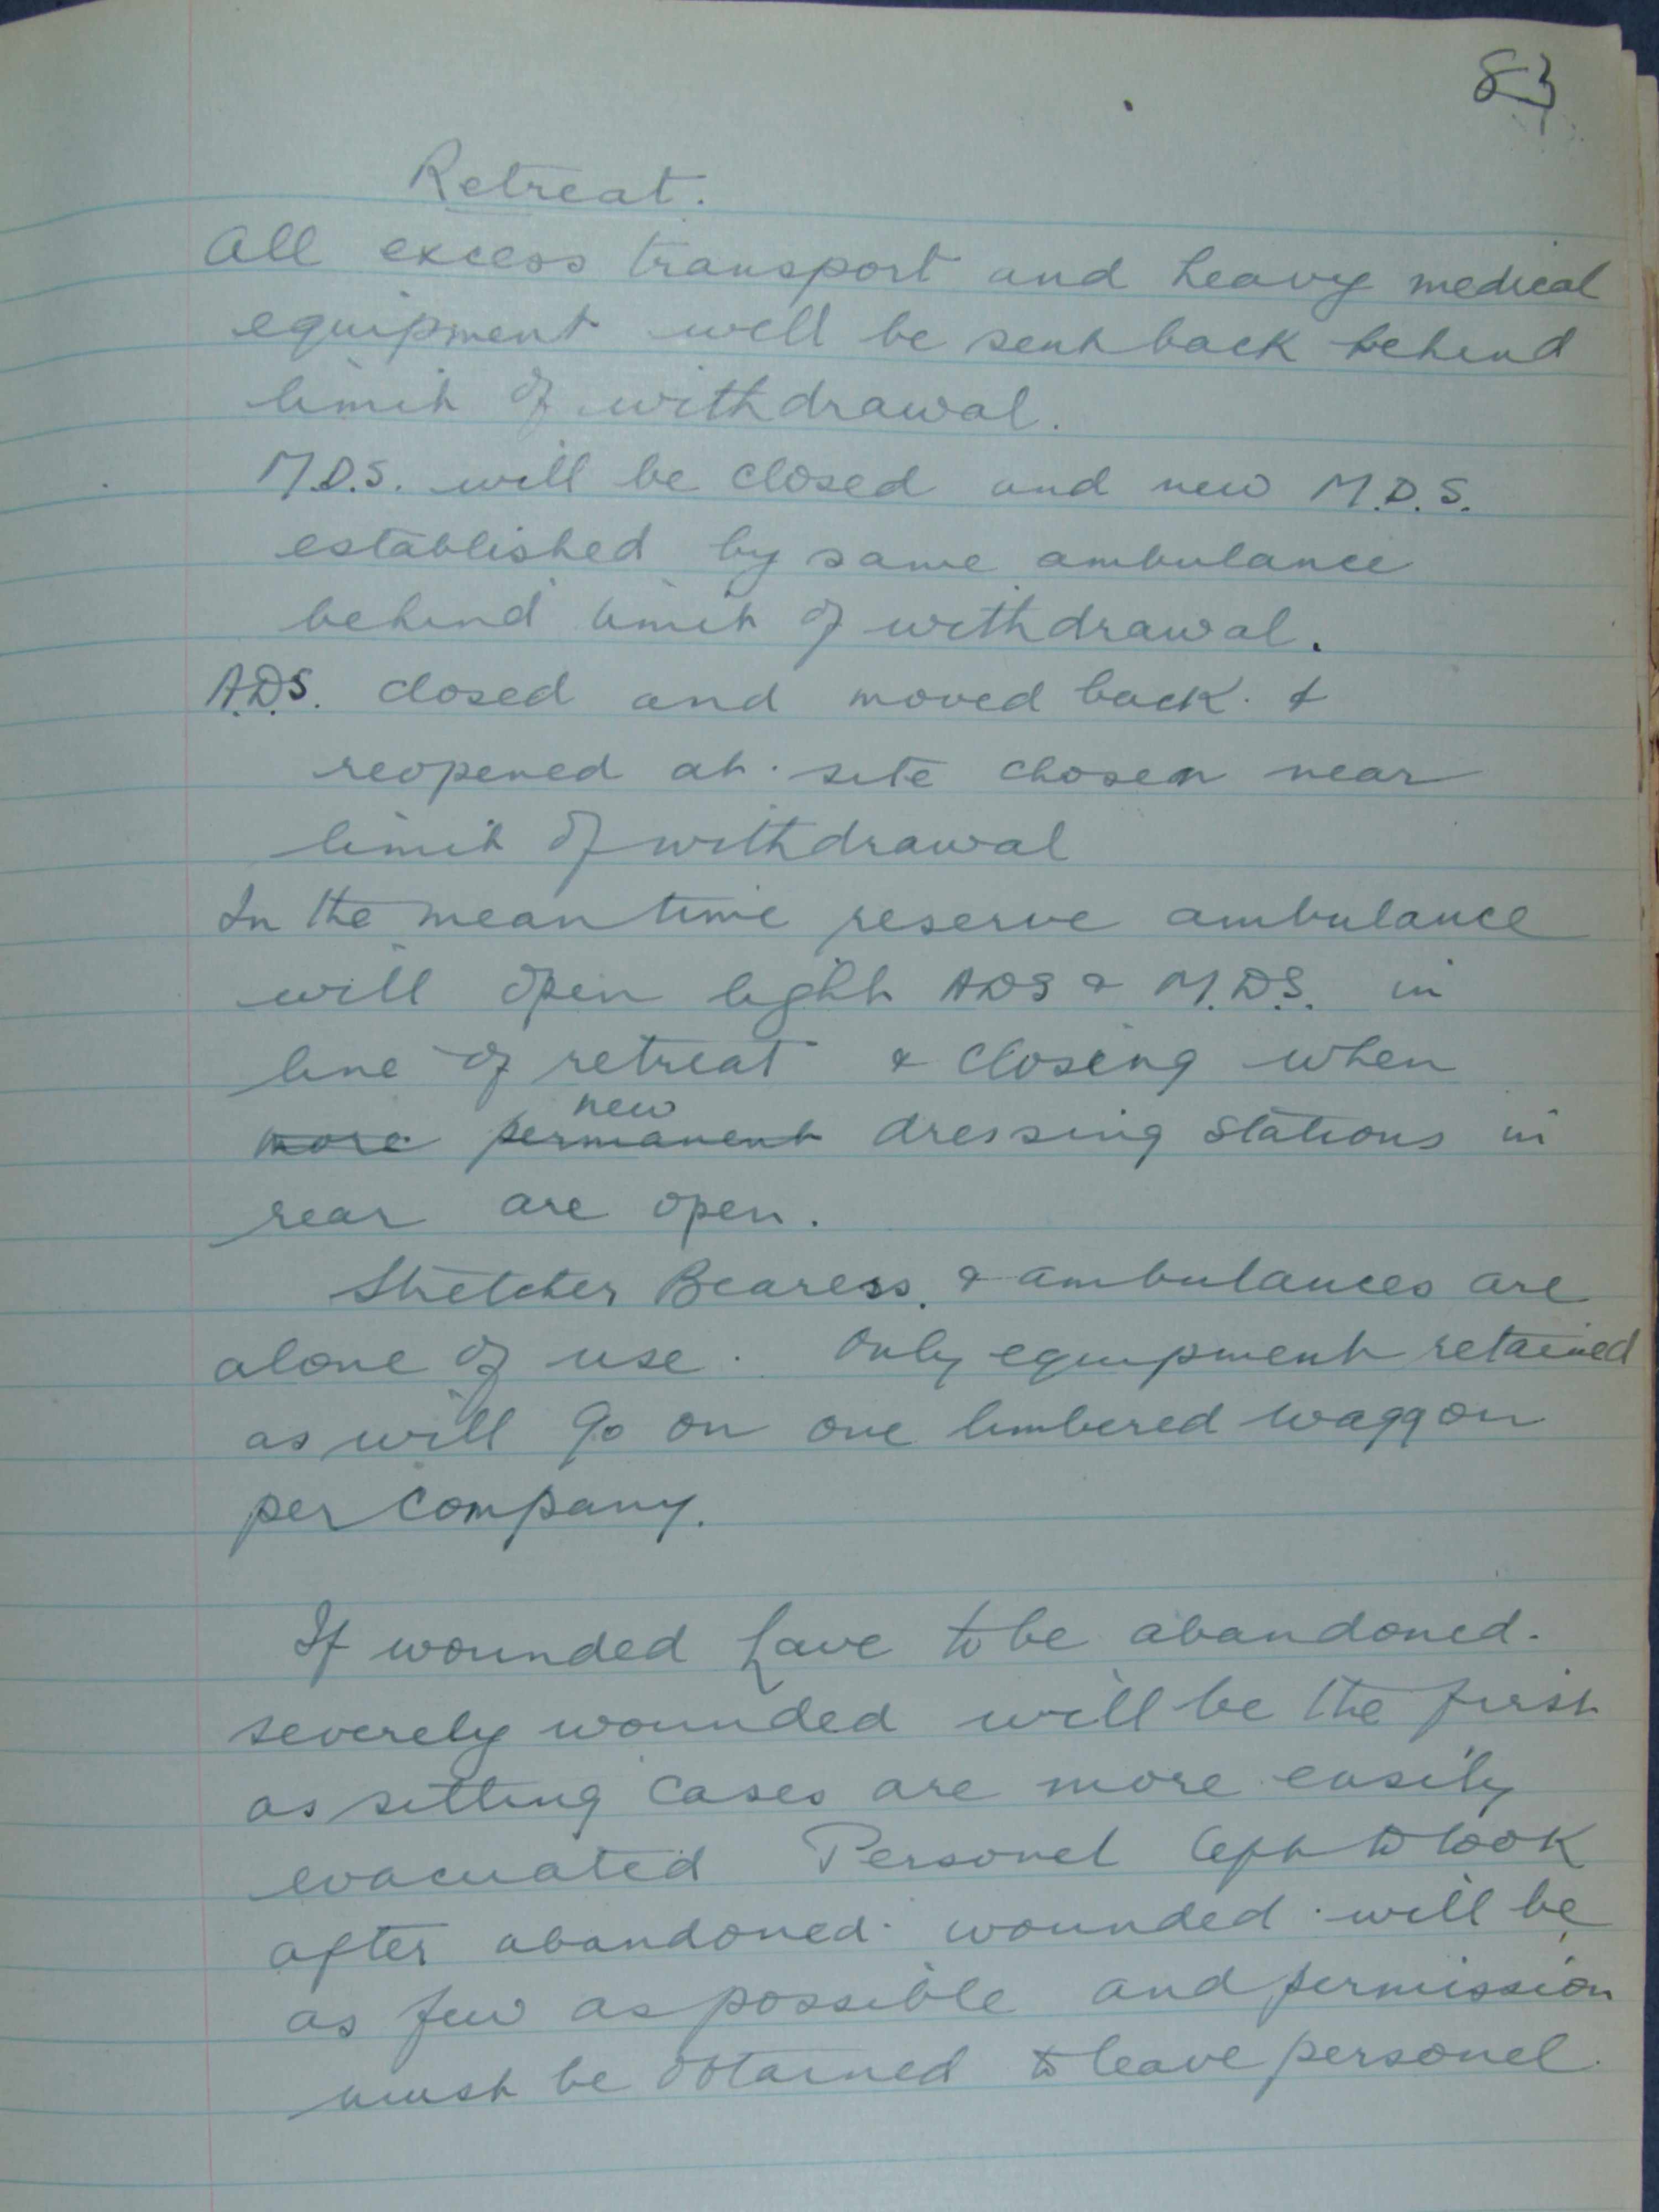 83
Retreat.
All excess transport and heavy medical
equipment will be sent back behind
limit of withdrawal.
M.D.S. will be closed and new M.D.S.
established by same ambulance
behind limit of withdrawal.
A.D.S. closed and moved back &
reopened at site chosen near
limit of withdrawal
In the mean time reserve ambulance
will open light ADS & M.D.S. in
line of retreat & closing when
new
more permanent dressing stations in
rear are open.
Stretcher Bearers. & ambulances are
alone of use. Only equipment retained
as will go on one limbered waggon
per company.
If wounded have to be abandoned.
severely wounded will be the first
as sitting cases are more easily
evacuated Personel left to look
after abandoned wounded will be
as few as possible and permission
must be obtained to leave personel.